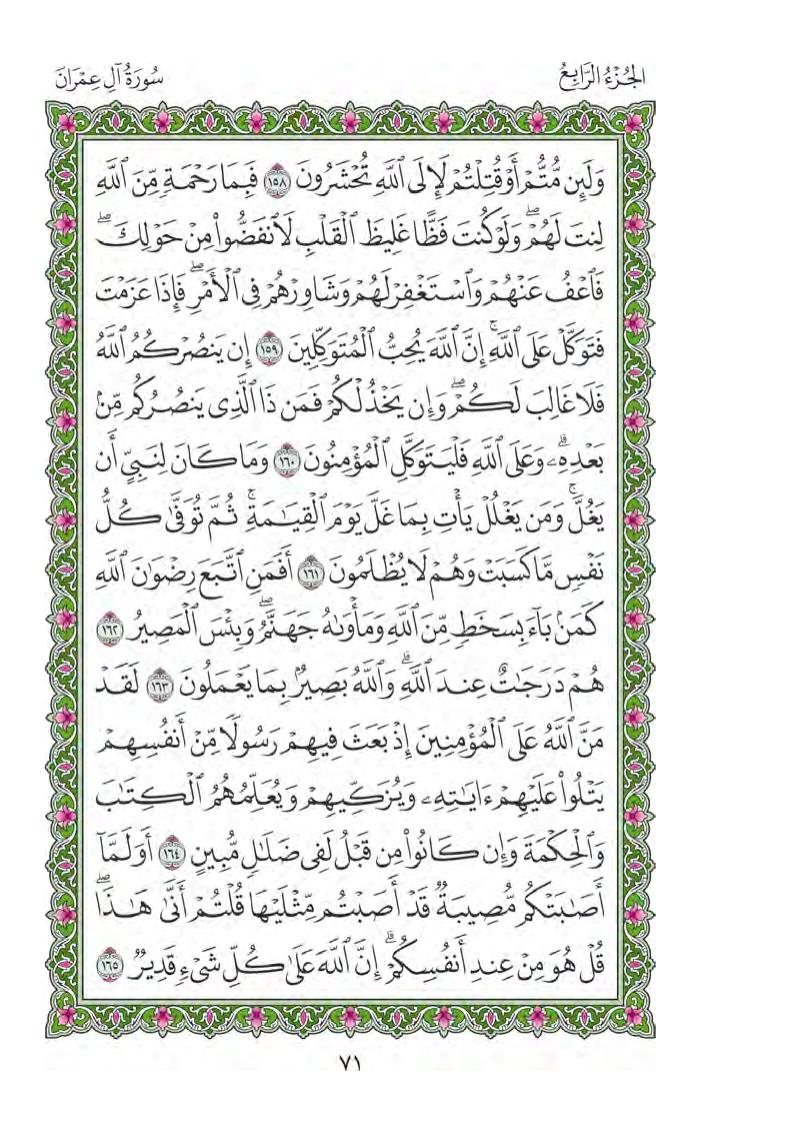 الجُزْءُ الرَّابِعُ
سُورَةُ آلِ عِمْرَانَ
وَلَئِن مُّتُّمۡ أَوۡ قُتِلۡتُمۡ لَإِلَى ٱللَّهِ تُحۡشَرُونَ ١٥٨ فَبِمَا رَحۡمَةٖ مِّنَ ٱللَّهِ
لِنتَ لَهُمۡۖ وَلَوۡ كُنتَ فَظًّا غَلِيظَ ٱلۡقَلۡبِ لَٱنفَضُّواْ مِنۡ حَوۡلِكَۖ
فَٱعۡفُ عَنۡهُمۡ وَٱسۡتَغۡفِرۡ لَهُمۡ وَشَاوِرۡهُمۡ فِي ٱلۡأَمۡرِۖ فَإِذَا عَزَمۡتَ
فَتَوَكَّلۡ عَلَى ٱللَّهِۚ إِنَّ ٱللَّهَ يُحِبُّ ٱلۡمُتَوَكِّلِينَ ١٥٩ إِن يَنصُرۡكُمُ ٱللَّهُ
فَلَا غَالِبَ لَكُمۡۖ وَإِن يَخۡذُلۡكُمۡ فَمَن ذَا ٱلَّذِي يَنصُرُكُم مِّنۢ
بَعۡدِهِۦۗ وَعَلَى ٱللَّهِ فَلۡيَتَوَكَّلِ ٱلۡمُؤۡمِنُونَ ١٦٠ وَمَا كَانَ لِنَبِيٍّ أَن
يَغُلَّۚ وَمَن يَغۡلُلۡ يَأۡتِ بِمَا غَلَّ يَوۡمَ ٱلۡقِيَٰمَةِۚ ثُمَّ تُوَفَّىٰ كُلُّ
نَفۡسٖ مَّا كَسَبَتۡ وَهُمۡ لَا يُظۡلَمُونَ ١٦١ أَفَمَنِ ٱتَّبَعَ رِضۡوَٰنَ ٱللَّهِ
كَمَنۢ بَآءَ بِسَخَطٖ مِّنَ ٱللَّهِ وَمَأۡوَىٰهُ جَهَنَّمُۖ وَبِئۡسَ ٱلۡمَصِيرُ ١٦٢
هُمۡ دَرَجَٰتٌ عِندَ ٱللَّهِۗ وَٱللَّهُ بَصِيرُۢ بِمَا يَعۡمَلُونَ ١٦٣ لَقَدۡ
مَنَّ ٱللَّهُ عَلَى ٱلۡمُؤۡمِنِينَ إِذۡ بَعَثَ فِيهِمۡ رَسُولٗا مِّنۡ أَنفُسِهِمۡ
يَتۡلُواْ عَلَيۡهِمۡ ءَايَٰتِهِۦ وَيُزَكِّيهِمۡ وَيُعَلِّمُهُمُ ٱلۡكِتَٰبَ
وَٱلۡحِكۡمَةَ وَإِن كَانُواْ مِن قَبۡلُ لَفِي ضَلَٰلٖ مُّبِينٍ ١٦٤ أَوَلَمَّآ
أَصَٰبَتۡكُم مُّصِيبَةٞ قَدۡ أَصَبۡتُم مِّثۡلَيۡهَا قُلۡتُمۡ أَنَّىٰ هَٰذَاۖ
قُلۡ هُوَ مِنۡ عِندِ أَنفُسِكُمۡۗ إِنَّ ٱللَّهَ عَلَىٰ كُلِّ شَيۡءٖ قَدِيرٞ ١٦٥
٧١